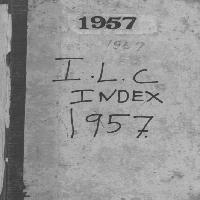 1957
1957
I.L.C
INDEX
1957.